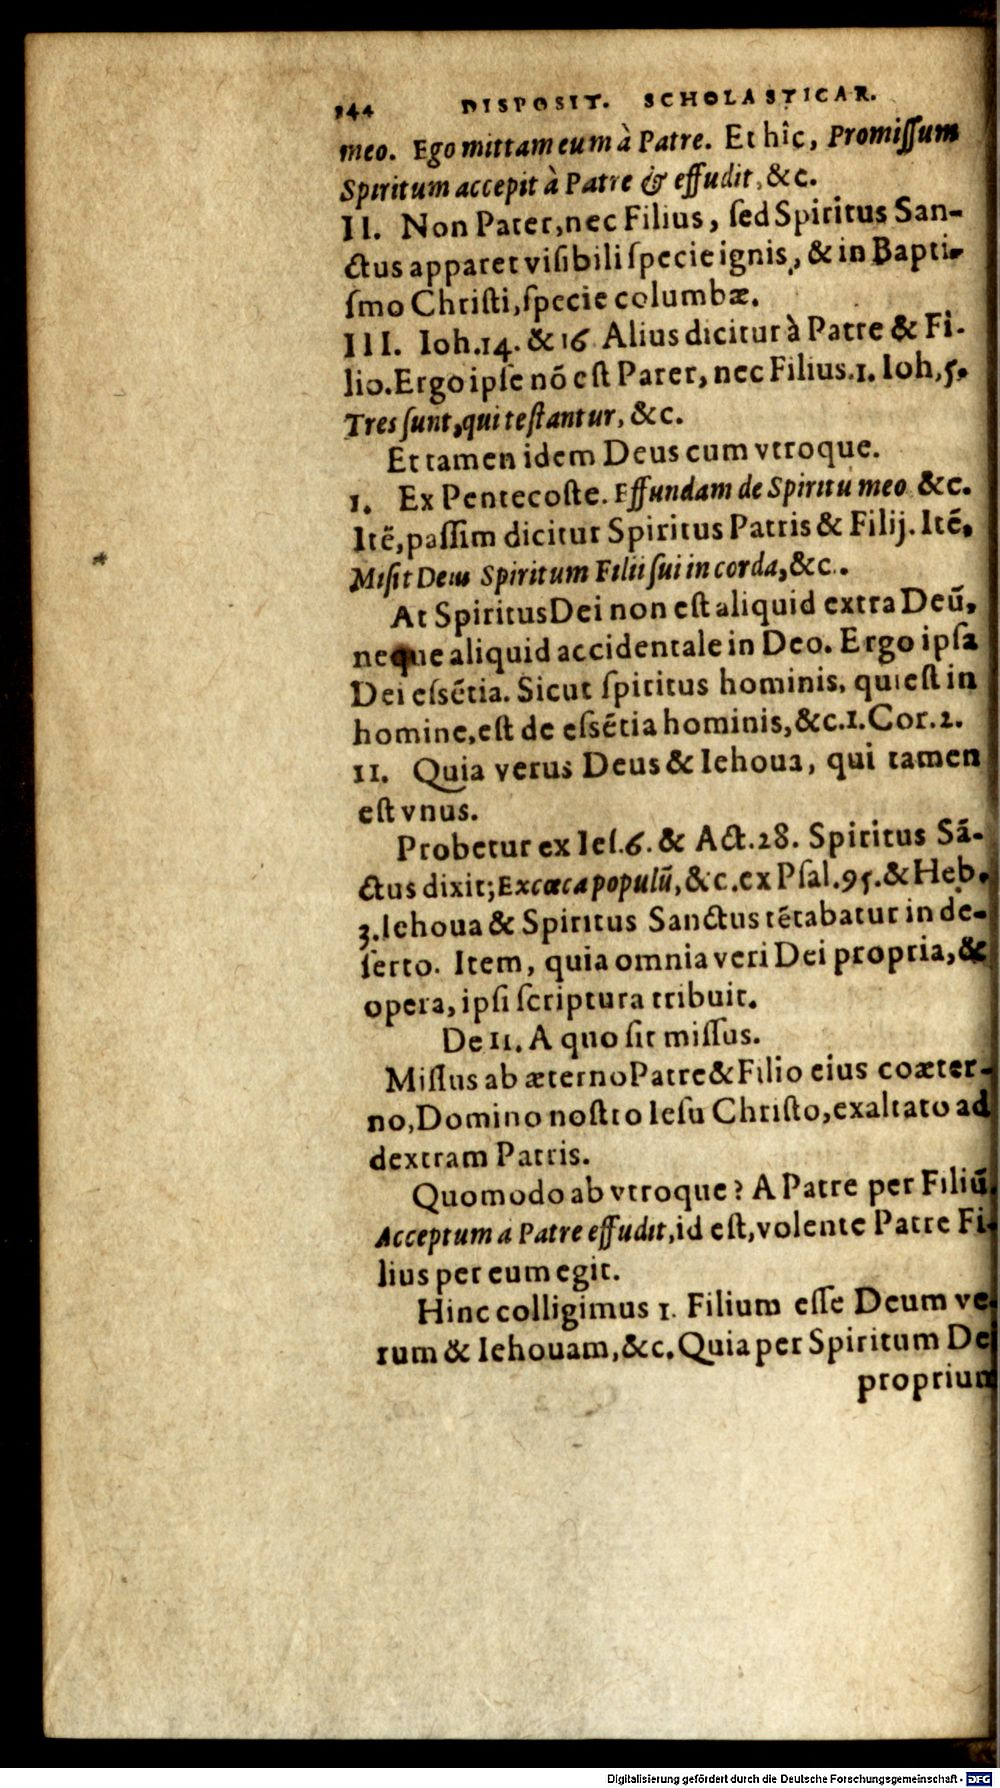 144 DISPOSIT. SCHOLASTICAR.
meo. Ego mittam eum à Patre. Et hîc, Promiſſum
Spiritum accepit à Patre & effudit, &c.
II. Non Pater, nec Filius, ſed Spiritus San-
ctus apparet viſibili ſpecie ignis, & in Bapti-
ſmo Chriſti, ſpecie columbæ.
III. Ioh. 14. & 16 Alius dicitur à Patre & Fi-
lio. Ergo ipſe nō eſt Pater, nec Filius. 1. Ioh, 5.
Tres ſunt, qui teſtantur, &c.
Et tamen idem Deus cum vtroque.
1. Ex Pentecoſte. Effundam de Spiritu meo &c.
Itē, paſſim dicitur Spiritus Patris & Filij. Itē,
Miſit Deus Spiritum Filii ſui in corda, &c.
At Spiritus Dei non eſt aliquid extra Deū,
neque aliquid accidentale in Deo. Ergo ipſa
Dei eſsētia. Sicut ſpiritus hominis, qui eſt in
homine, eſt de eſsētia hominis, &c. 1. Cor. 2.
II. Quia verus Deus & Iehoua, qui tamen
eſt vnus.
Probetur ex Ieſ. 6. & Act. 28. Spiritus Sā-
ctus dixit; Excæca populū, &c. ex Pſal. 95. & Heb.
3. Iehoua & Spiritus Sanctus tētabatur in de-
ſerto. Item, quia omnia veri Dei propria, &
opera, ipſi ſcriptura tribuit.
De II. A quo ſit miſſus.
Miſſus ab æterno Patre & Filio eius coæter-
no, Domino noſtro Ieſu Chriſto, exaltato ad
dextram Patris.
Quomodo ab vtroque? A Patre per Filiū.
Acceptum a Patre effudit, id eſt, volente Patre Fi-
lius per eum egit.
Hinc colligimus 1. Filium eſſe Deum ve-
rum & Iehouam, &c. Quia per Spiritum De
proprium
Digitalisierung gefördert durch die Deutsche Forschungsgemeinschaft - DFG